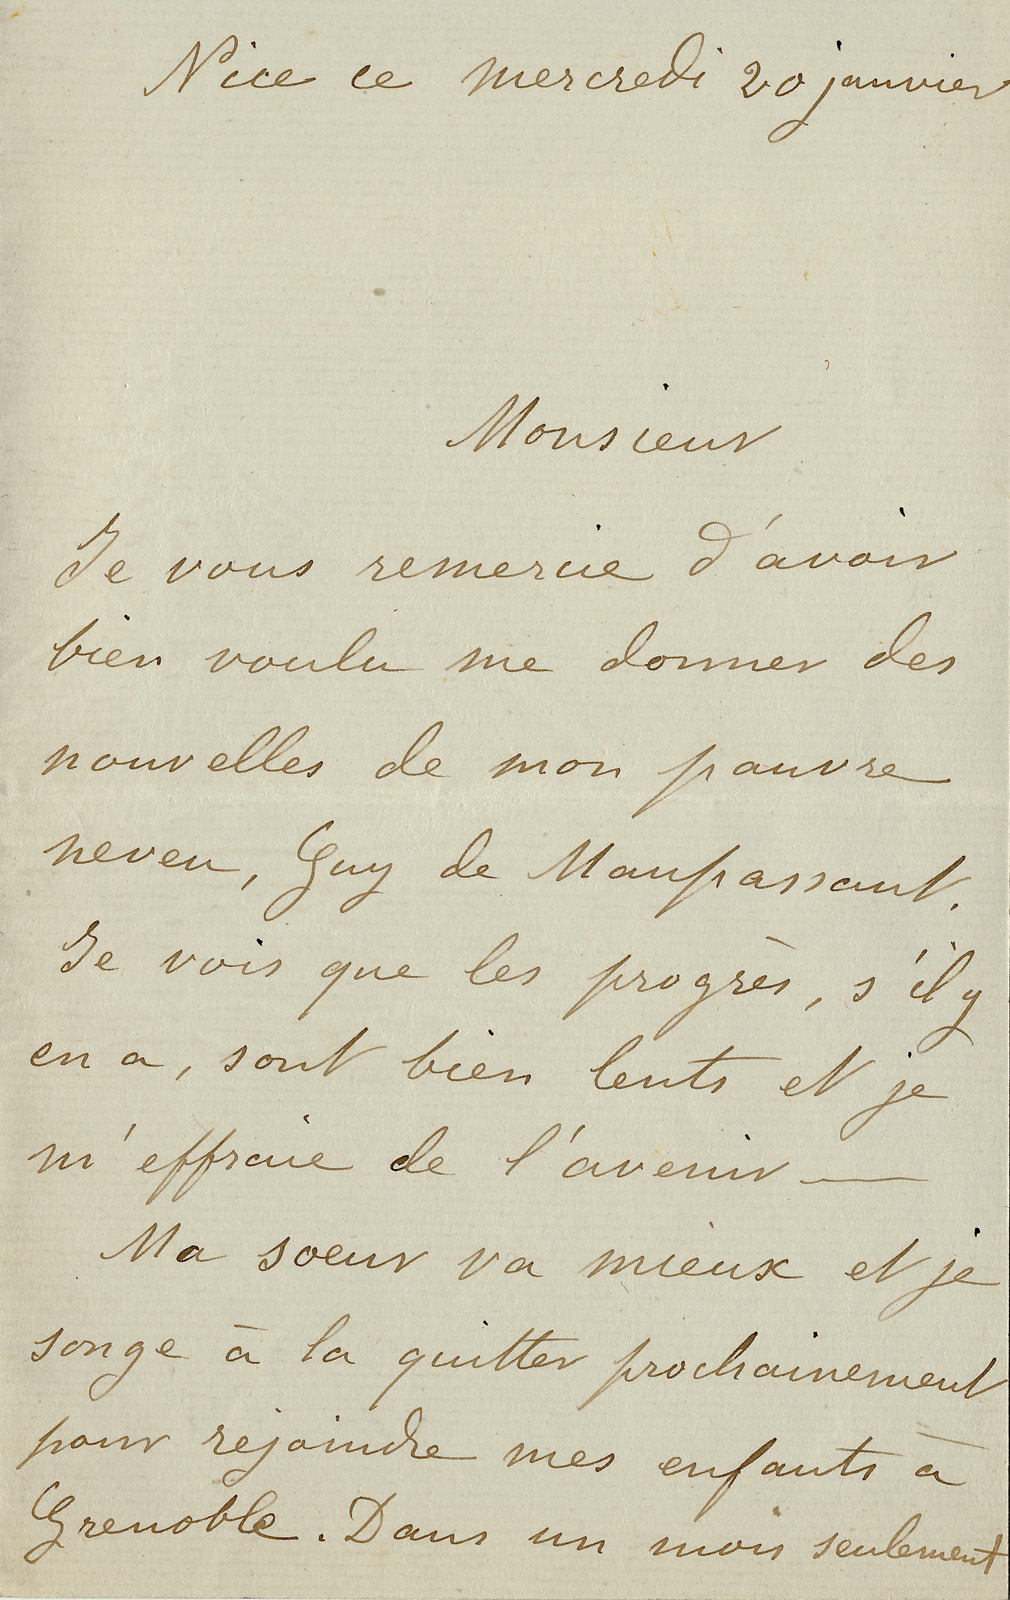 Nice ce mercredi 20 janvier
Monsieur
Je vous remercie d'avoir
bien voulu me donner des
nouvelles de mon pauvre
neveu, Guy de Maupassant.
Je vois que les progrès, s'il y
en a, sont bien lents et je
m'effraie de l'avenir —
Ma soeur va mieux et je
songe à la quitter prochainement
pour rejoindre mes enfants à
Grenoble. Dans un mois seulement